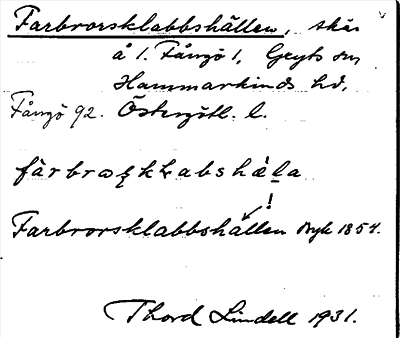 Farbrorsklabbshällen, skär
å l. Fångö 1, Gryts sn
Hammarkinds hd,
Fångö 92. Östergötl. l.
fàrbrorsklabshǽla
!
Farbrorsklabbshällen Byk 1854.
Thord Lindell 1931.